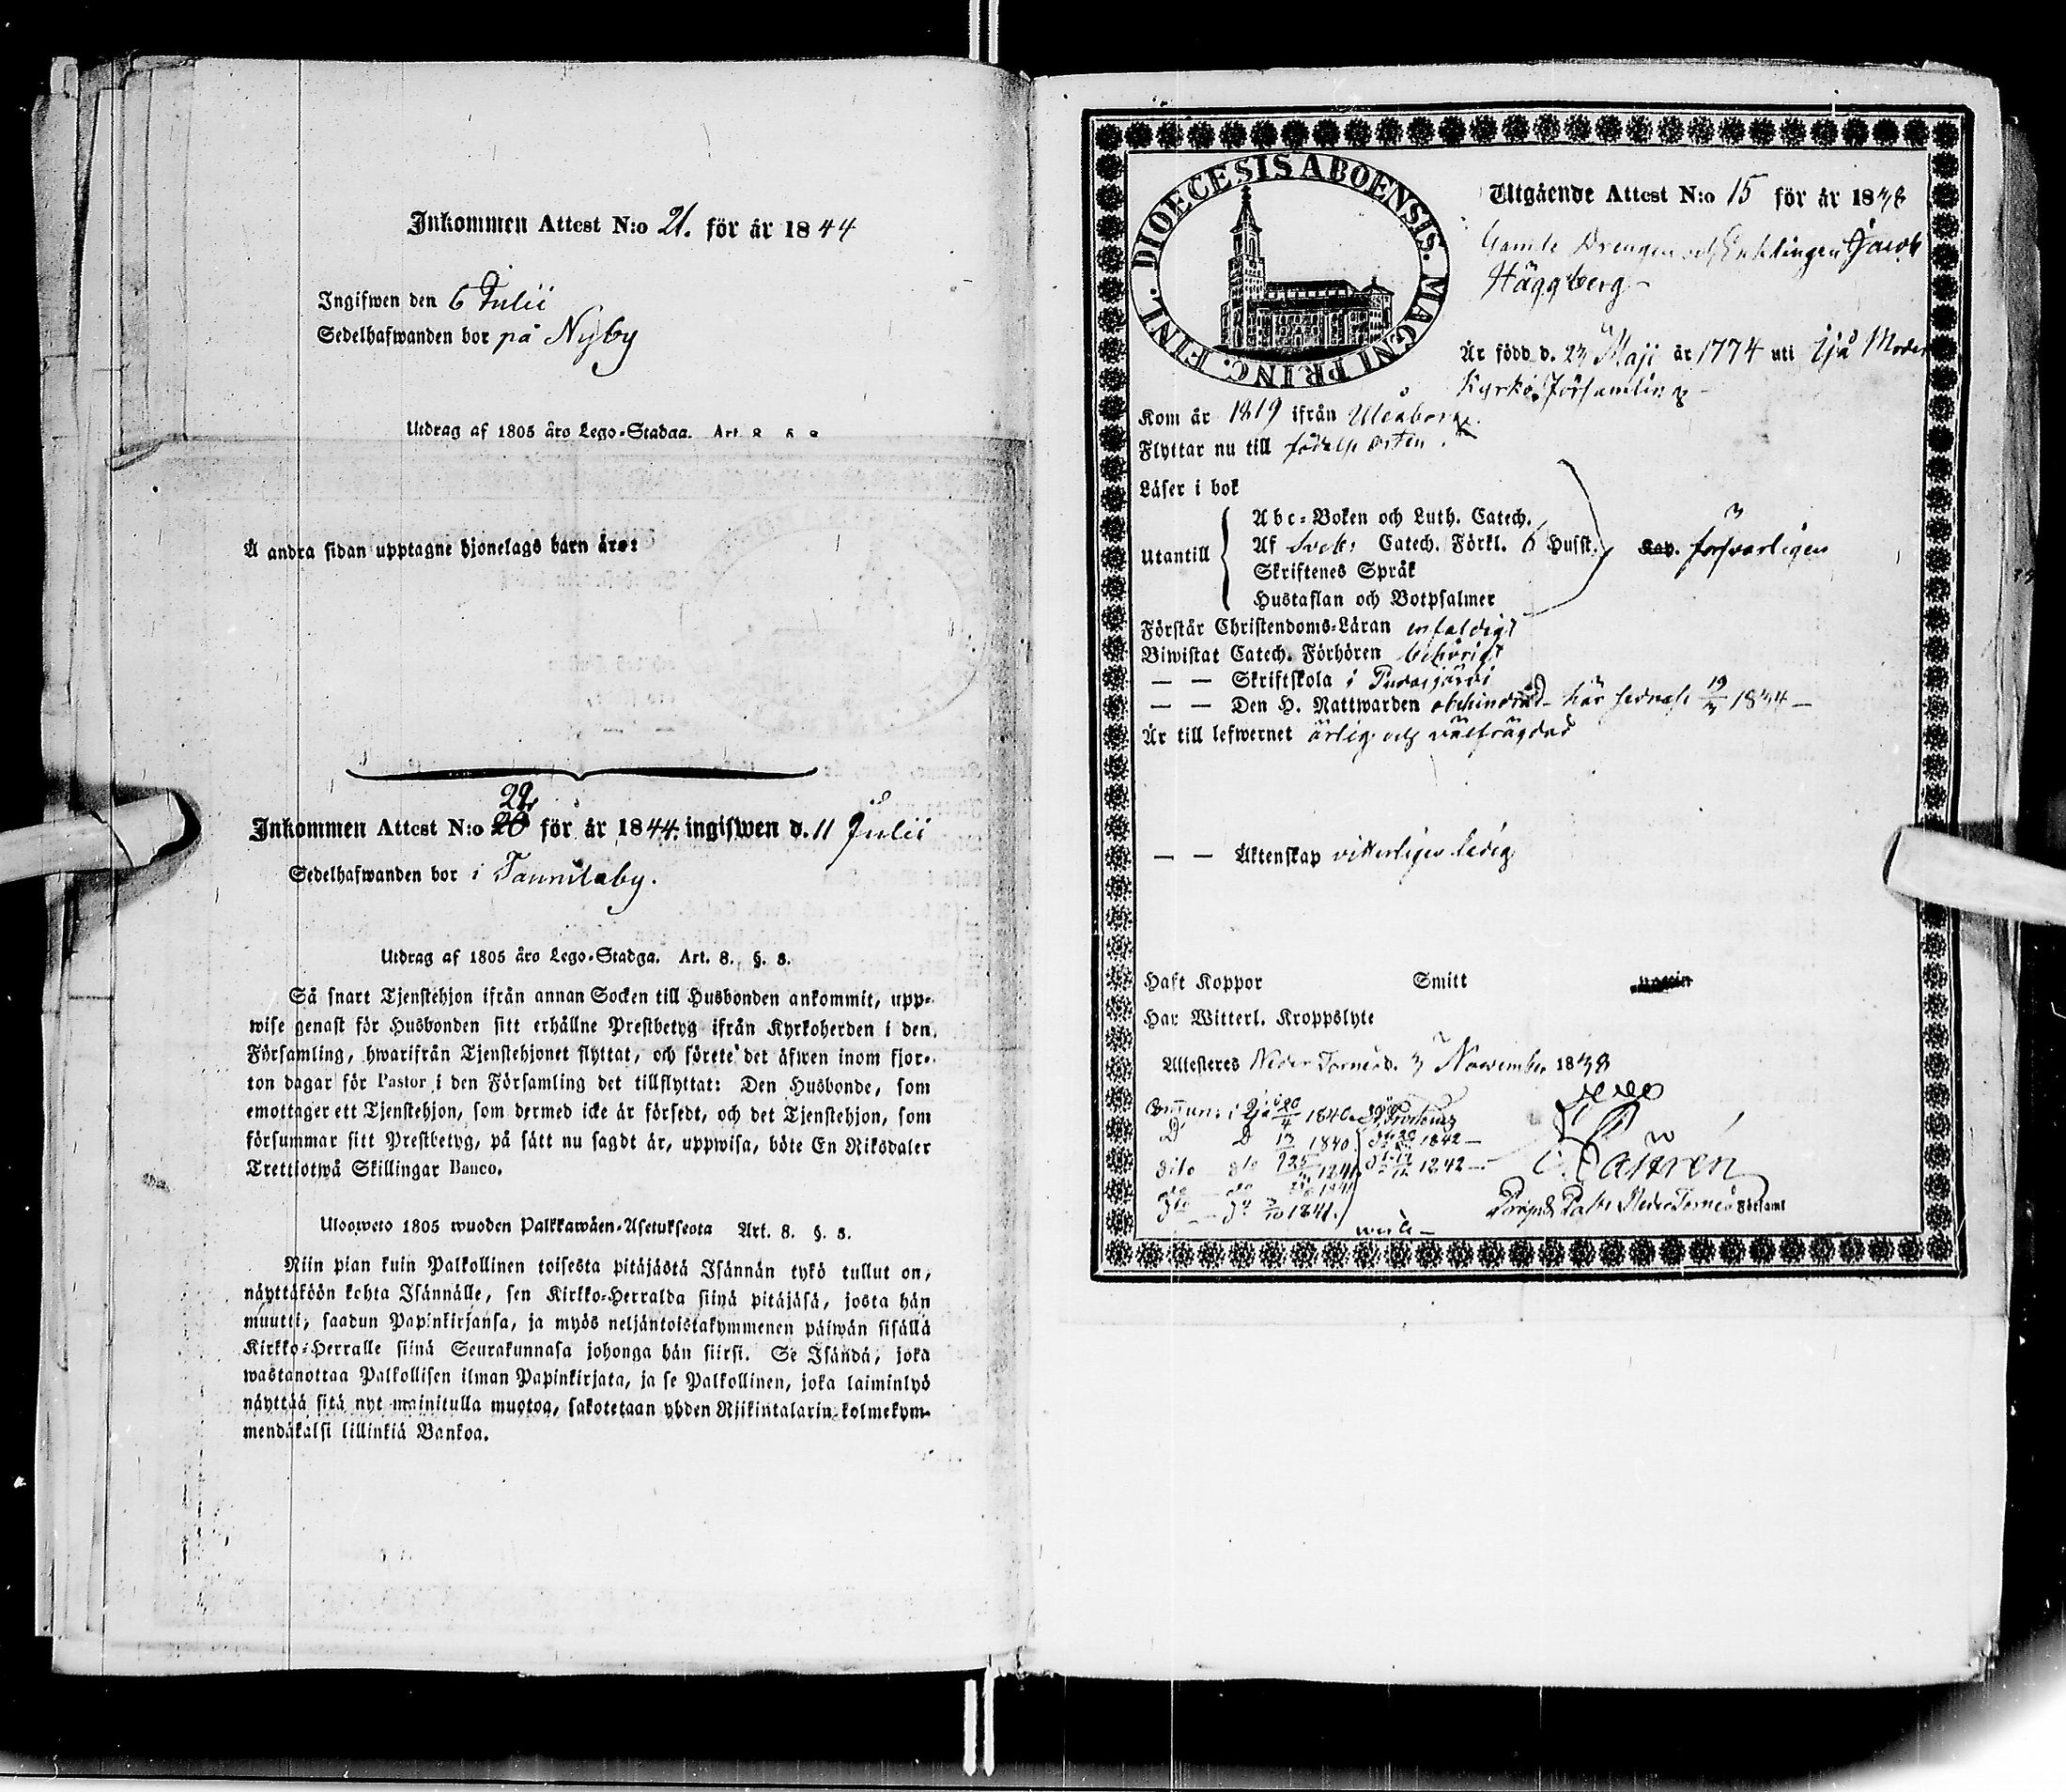 Inkommen Attest N:o 21. för år 1844
Ingifwen den 6 Julii
Sedelhafwanden bor på Nyby
Utdrag af 1805 års Lego-Stadga. Art. 8. §. 8.
Å andra sidan upptagne hjonelags barn äro:
29.
Inkommen Attest N:o 20 för år 1844. ingifwen d. 11 Julii
Sedelhafwanden bor i Tannilaby.
Utdrag af 1805 års Lego-Stadga. Art. 8. §. 8.
Så snart Tjenstehjon ifrån annan Socken till Husbonden ankommit, upp-
wise genast för Husbonden sitt erhållne Prestbetyg ifrån Kyrkoherden i den
Församling, hwarifrån Tjenstehjonet flyttat, och förete det äfwen inom fjor-
ton dagar för Pastor i den Församling det tillflyttat: Den Husbonde, som
emottager ett Tjenstehjon, som dermed icke är försedt, och det Tjenstehjon, som
försummar sitt Prestbetyg, på sätt nu sagdt är, uppwisa, böte En Riksdaler
Trettiotwå Skillingar Banco.
Ulosweto 1805 wuoden Palkkawäen-Asetuksesta Art. 8. §. 8.
Niin pian kuin Palkollinen toisesta pitäjästä Isännän tykö tullut on,
näyttäköön kohta Isännälle, sen Kirkko-Herralda siinä pitäjäsä, josta hän
muutti, saadun Papinkirjansa, ja myös neljäntoistakymmenen päiwän sisällä
Kirkko-Herralle siinä Seurakunnasa johonga hän siirsi. Se Isändä, joka
wastanottaa Palkollisen ilman Papinkirjata, ja se Palkollinen, joka laiminlyö
näyttää sitä nyt mainitulla muotoa, sakotetaan yhden Riikintalarin kolmekym-
mendäkaksi killinkiä Bankoa.
DIOECESIS ABOENSIS. MAGNI PRINC. FINL.
Utgående Attest N:o 15 för år 1838
Gamle Drengen och Enklingen Jacob
Häggberg
Är född d. 23 Maji år 1774 uti Ijå Moder
Kyrko Församling
Kom år 1819 ifrån Uleåborg
Flyttar nu till födelse orten.
Läser i bok
Utantill
Abc-Boken och Luth. Catech.
Af Sveb: Catech. Förkl. 6 Husst.
Skriftenes Språk
Hustaflan och Botpsalmer
försvarligen
Förstår Christendoms-Läran enfaldigt
Biwistat Catech. Förhören behörigt
— — Skriftskola i Pudasjärvi
— — Den H. Nattwarden obehindrad här sednast 19/ 1834 —
Är till lefwernet ärlig och välfrägdad
— — Äktenskap vitterligen ledig
Haft Koppor Smitt
Har Witterl. Kroppslyte
Attesteres Neder Torneå d. 3 November 1838
Commun: i Ijå 20/4 1840
D D 13/ 1840 1842 —
dito dto 25/ 1841 1842 —
1841
1841.
Castrén
Neder Torneå Församl